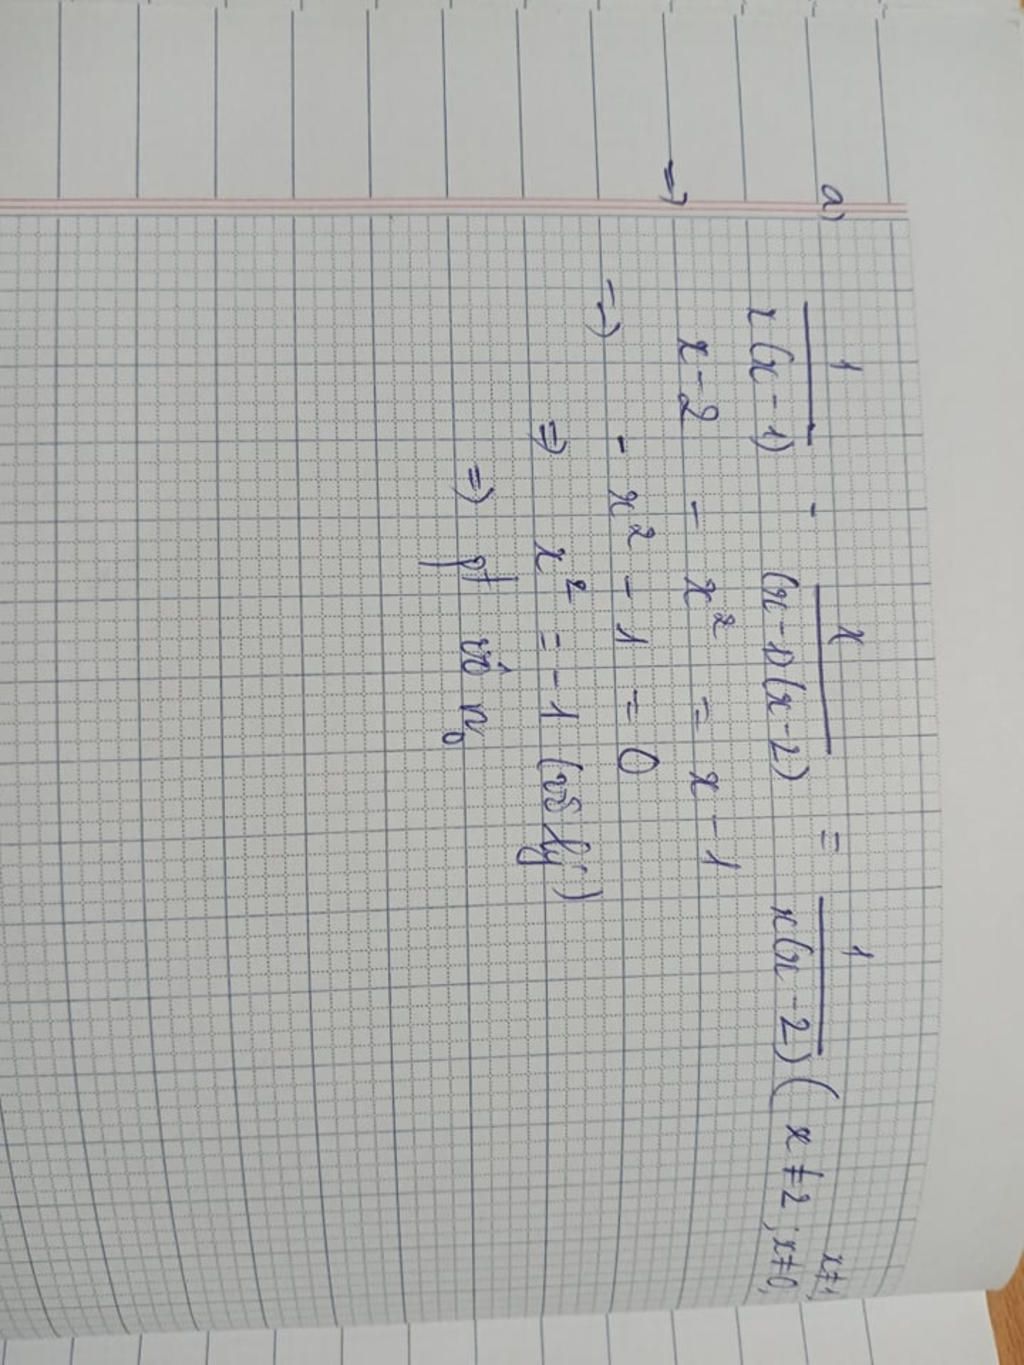 a) 1/x(x-1) - x/(x-1)(x-2) = 1/x(x-2) (x≠2; x≠0, x≠1)
=> x-2 - x² = x-1
=> - x² - 1 = 0
=> x² = -1 (vô lý)
=> pt vô no